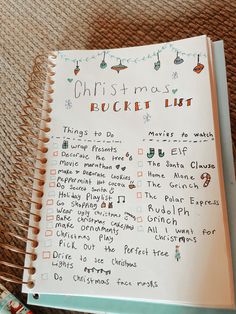 Christmas
BUCKET LIST
Things to Do
wrap Presents
Decorate the tree
Movie marathon
make & Decorate cookies
Peppermint Hot cocoa
Do Secret Santa
Holiday Playlist
Go Shopping
Wear ugly Christmas
Bake Christmas
make ornaments
Christmas Play
Pick Out the Perfect tree
Drive to see Christmas
Lights
Do Christmas face masks
Movies to watch
Elf
The Santa Clause
Home Alone
The Grinch
The Polar Express
Rudolph
Grinch
All I want for
Christmas